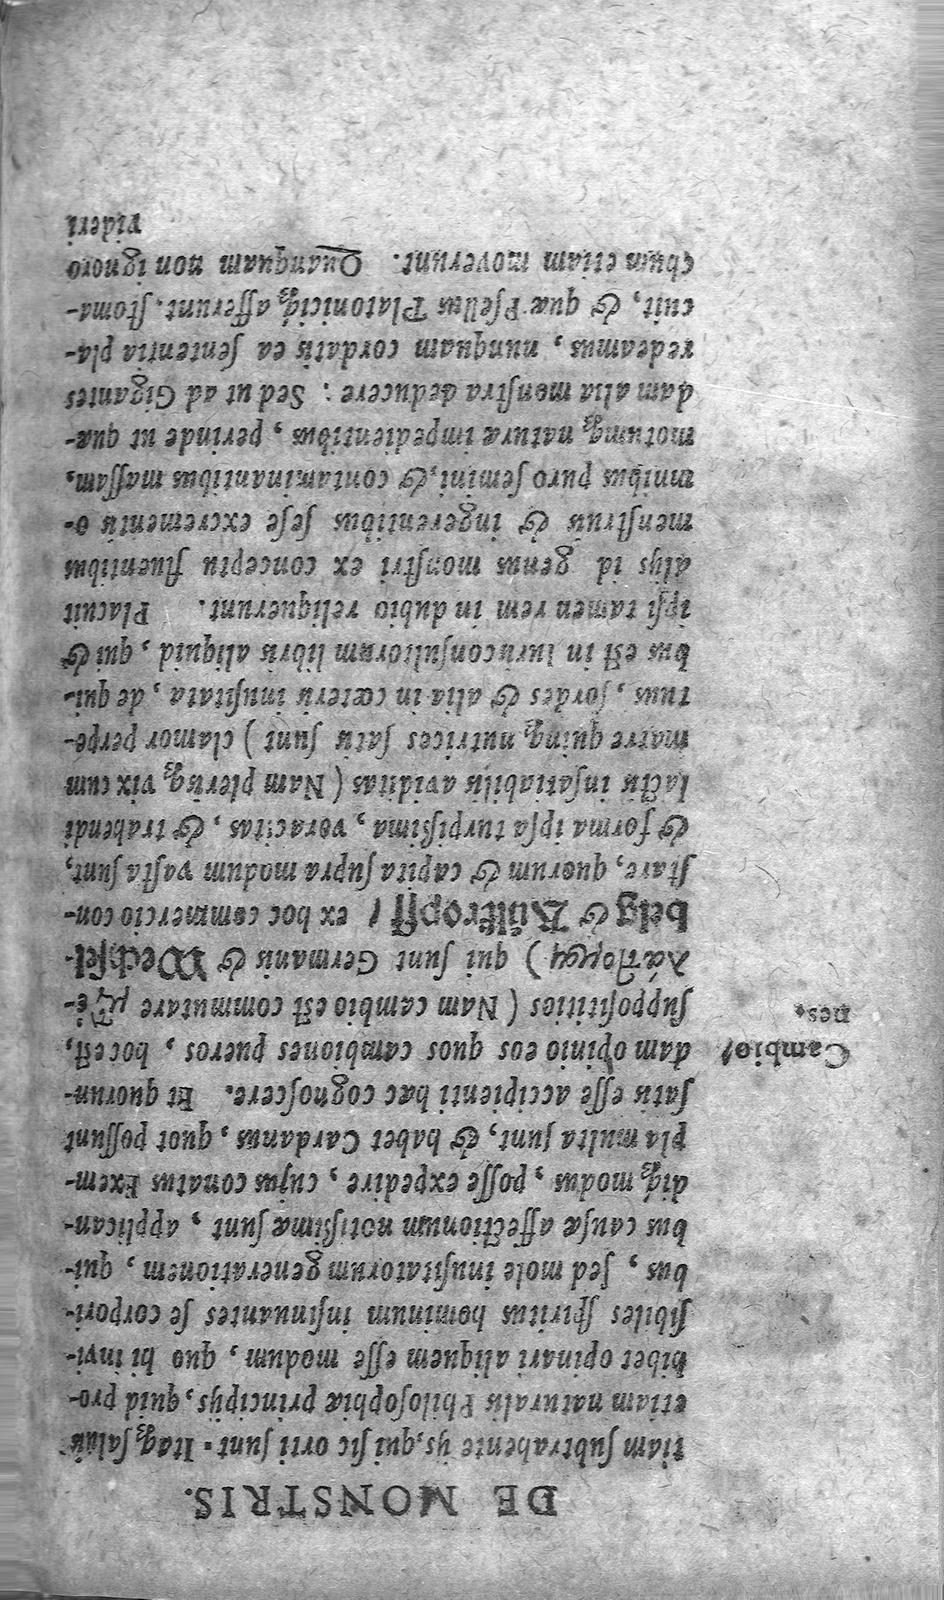 DE MONSTRIS.
tiam subtrahente ijs, qui sic orti sunt. Itaq; salvis
etiam naturalis Philosophiæ principijs, quid pro-
hibet opinari aliquem esse modum, quo hi invi-
sibiles spiritus hominum insinuantes se corpori-
bus, sed mole inusitatorum generationem, qui-
bus causæ affectionum notissimæ sunt, applican-
diq; modus, posse expedire, cujus conatus Exem-
pla multa sunt, & habet Cardanus, quot possunt
satis esse accipienti hæc cognoscere. Et quorun-
dam opinio eos quos cambiones pueros, hoc est,
Cambio/
nes.
supposititios (Nam cambio est commutare
qui sunt Germanis & Wechsel-
belg & Kiltropff/ ex hoc commercio con-
stare, quorum & capita supra modum vasta sunt,
& forma ipsa turpissima, voracitas, & trahendi
lactis insatiabilis aviditas (Nam plerisq; vix cum
matre quinq; nutrices satis sunt) clamor perpe-
tuus, sordes & alia in cœteris inusitata, de qui-
bus est in Iurisconsultorum libris aliquid, qui &
ipsi tamen rem in dubio reliquerunt. Placuit
alijs id genus monstri ex conceptu fluentibus
menstruis & ingerentibus sese excrementis o-
mnibus puro semini, & contaminantibus massam,
motumq; naturæ impedientibus, perinde ut quæ-
dam alia monstra deducere: Sed ut ad Gigantes
redeamus, nunquam cordatis ea sententia pla-
cuit, & quæ Psellus Platoniciq; afferunt, stoma-
chum etiam moverunt. Quanquam non ignoro
videri